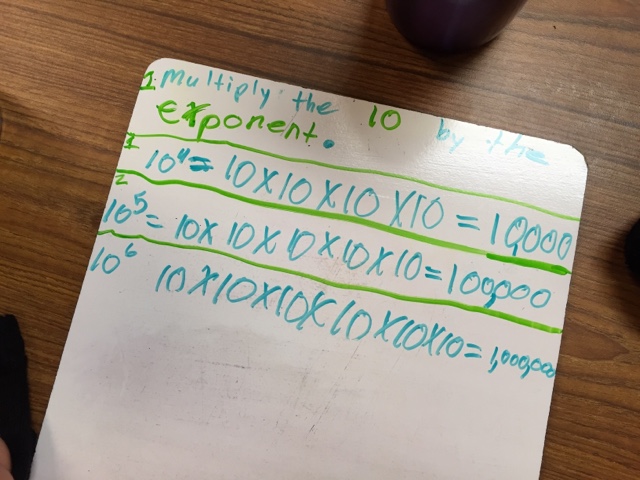 1. Multiply the 10 by the
exponent.
1 10⁴= 10X10X10X10 = 10,000
2 10⁵= 10X10X10X10X10=100,000
10⁶ 10X10X10X10X10X10=1,000,000